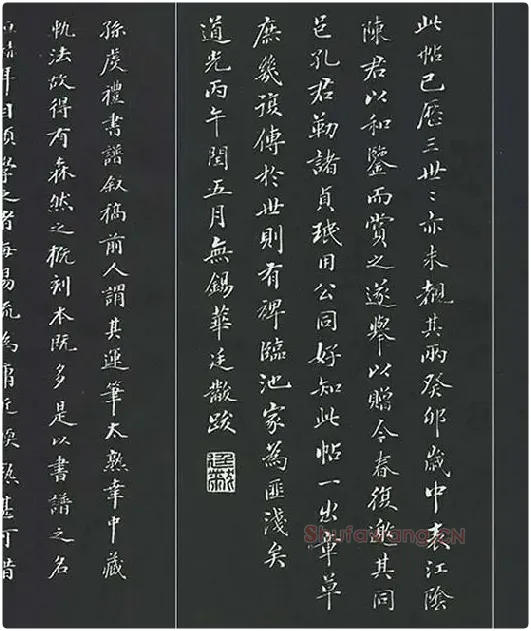 此帖已歷三世〻亦未覩其兩癸卯歲中表江陰
陳君以和鑒而賞之遂舉以贈今春復慫其同
邑孔君勒諸貞珉用公同好知此帖一出章草
庶幾復傳於世則有裨臨池家為匪淺矣
道光丙午閏五月無錫華廷黻跋
廷黻
孫虔禮書譜敘稿前人謂其運筆太熟幸中藏
軌法故得有森然之概刻本既多是以書譜之名
耳目顧學之者每易流為庸近熟甚可惜
Shufawang.CN